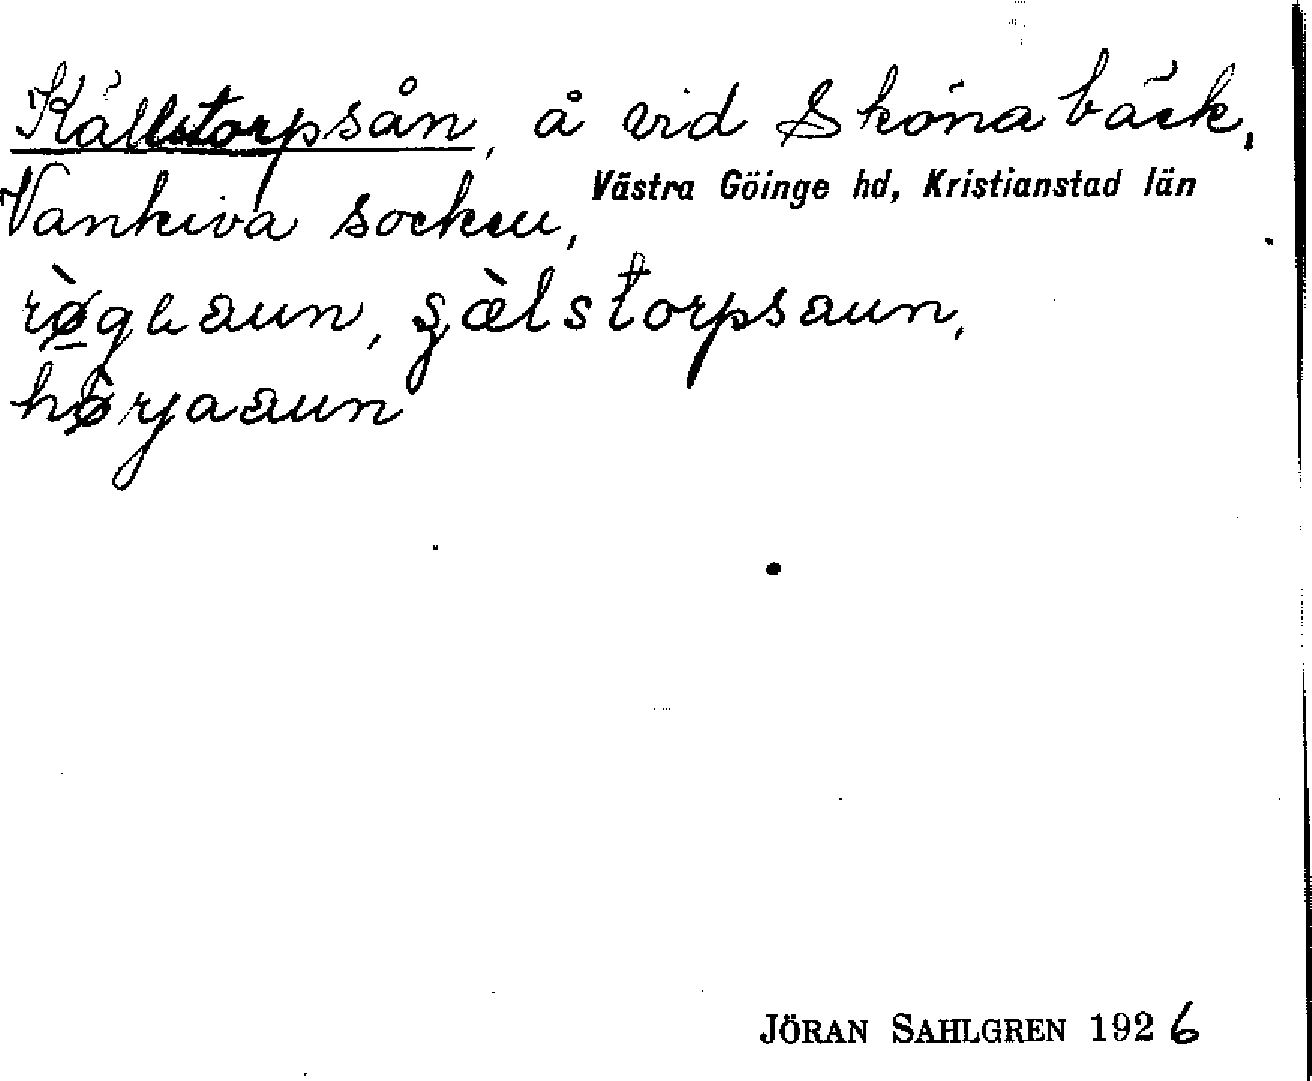 Källstorpsån, å vid Skönabäck,
Vankiva socken, Västra Göinge hd, Kristianstad län
rø̀geaun, ʂæ̀lstorpsaun,
hø̀rjaaun
JÖRAN SAHLGREN 1926